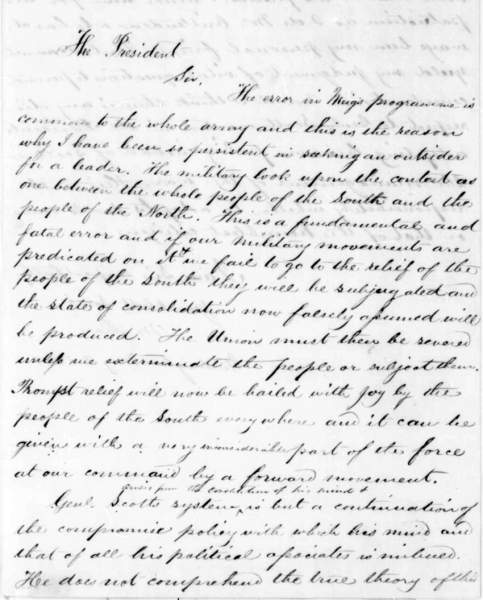 The President
Sir,
The error in Meigs programme is
common to the whole array and this is the reason
why I have been so persistent in seeking an outsider
for a leader. The military look upon the contest as
one between the whole people of the South and the
people of the North. This is a fundamental and
fatal error and if our military movements are
predicated on it & we fail to go to the relief of the
people of the South they will be subjugated and
the state of consolidation now falsely assumed will
be produced. The Union must then be severed
unless we exterminate the people or subject them.
Prompt relief will now be hailed with joy by the
people of the South everywhere and it can be
given with a very inconsiderable part of the force
at our command by a forward movement.
the condition of his mind &
Genl. Scotts system, is but a continuation of
the compromise policy with which his mind and
that of all his political associates is imbued.
He does not comprehend the true theory of this